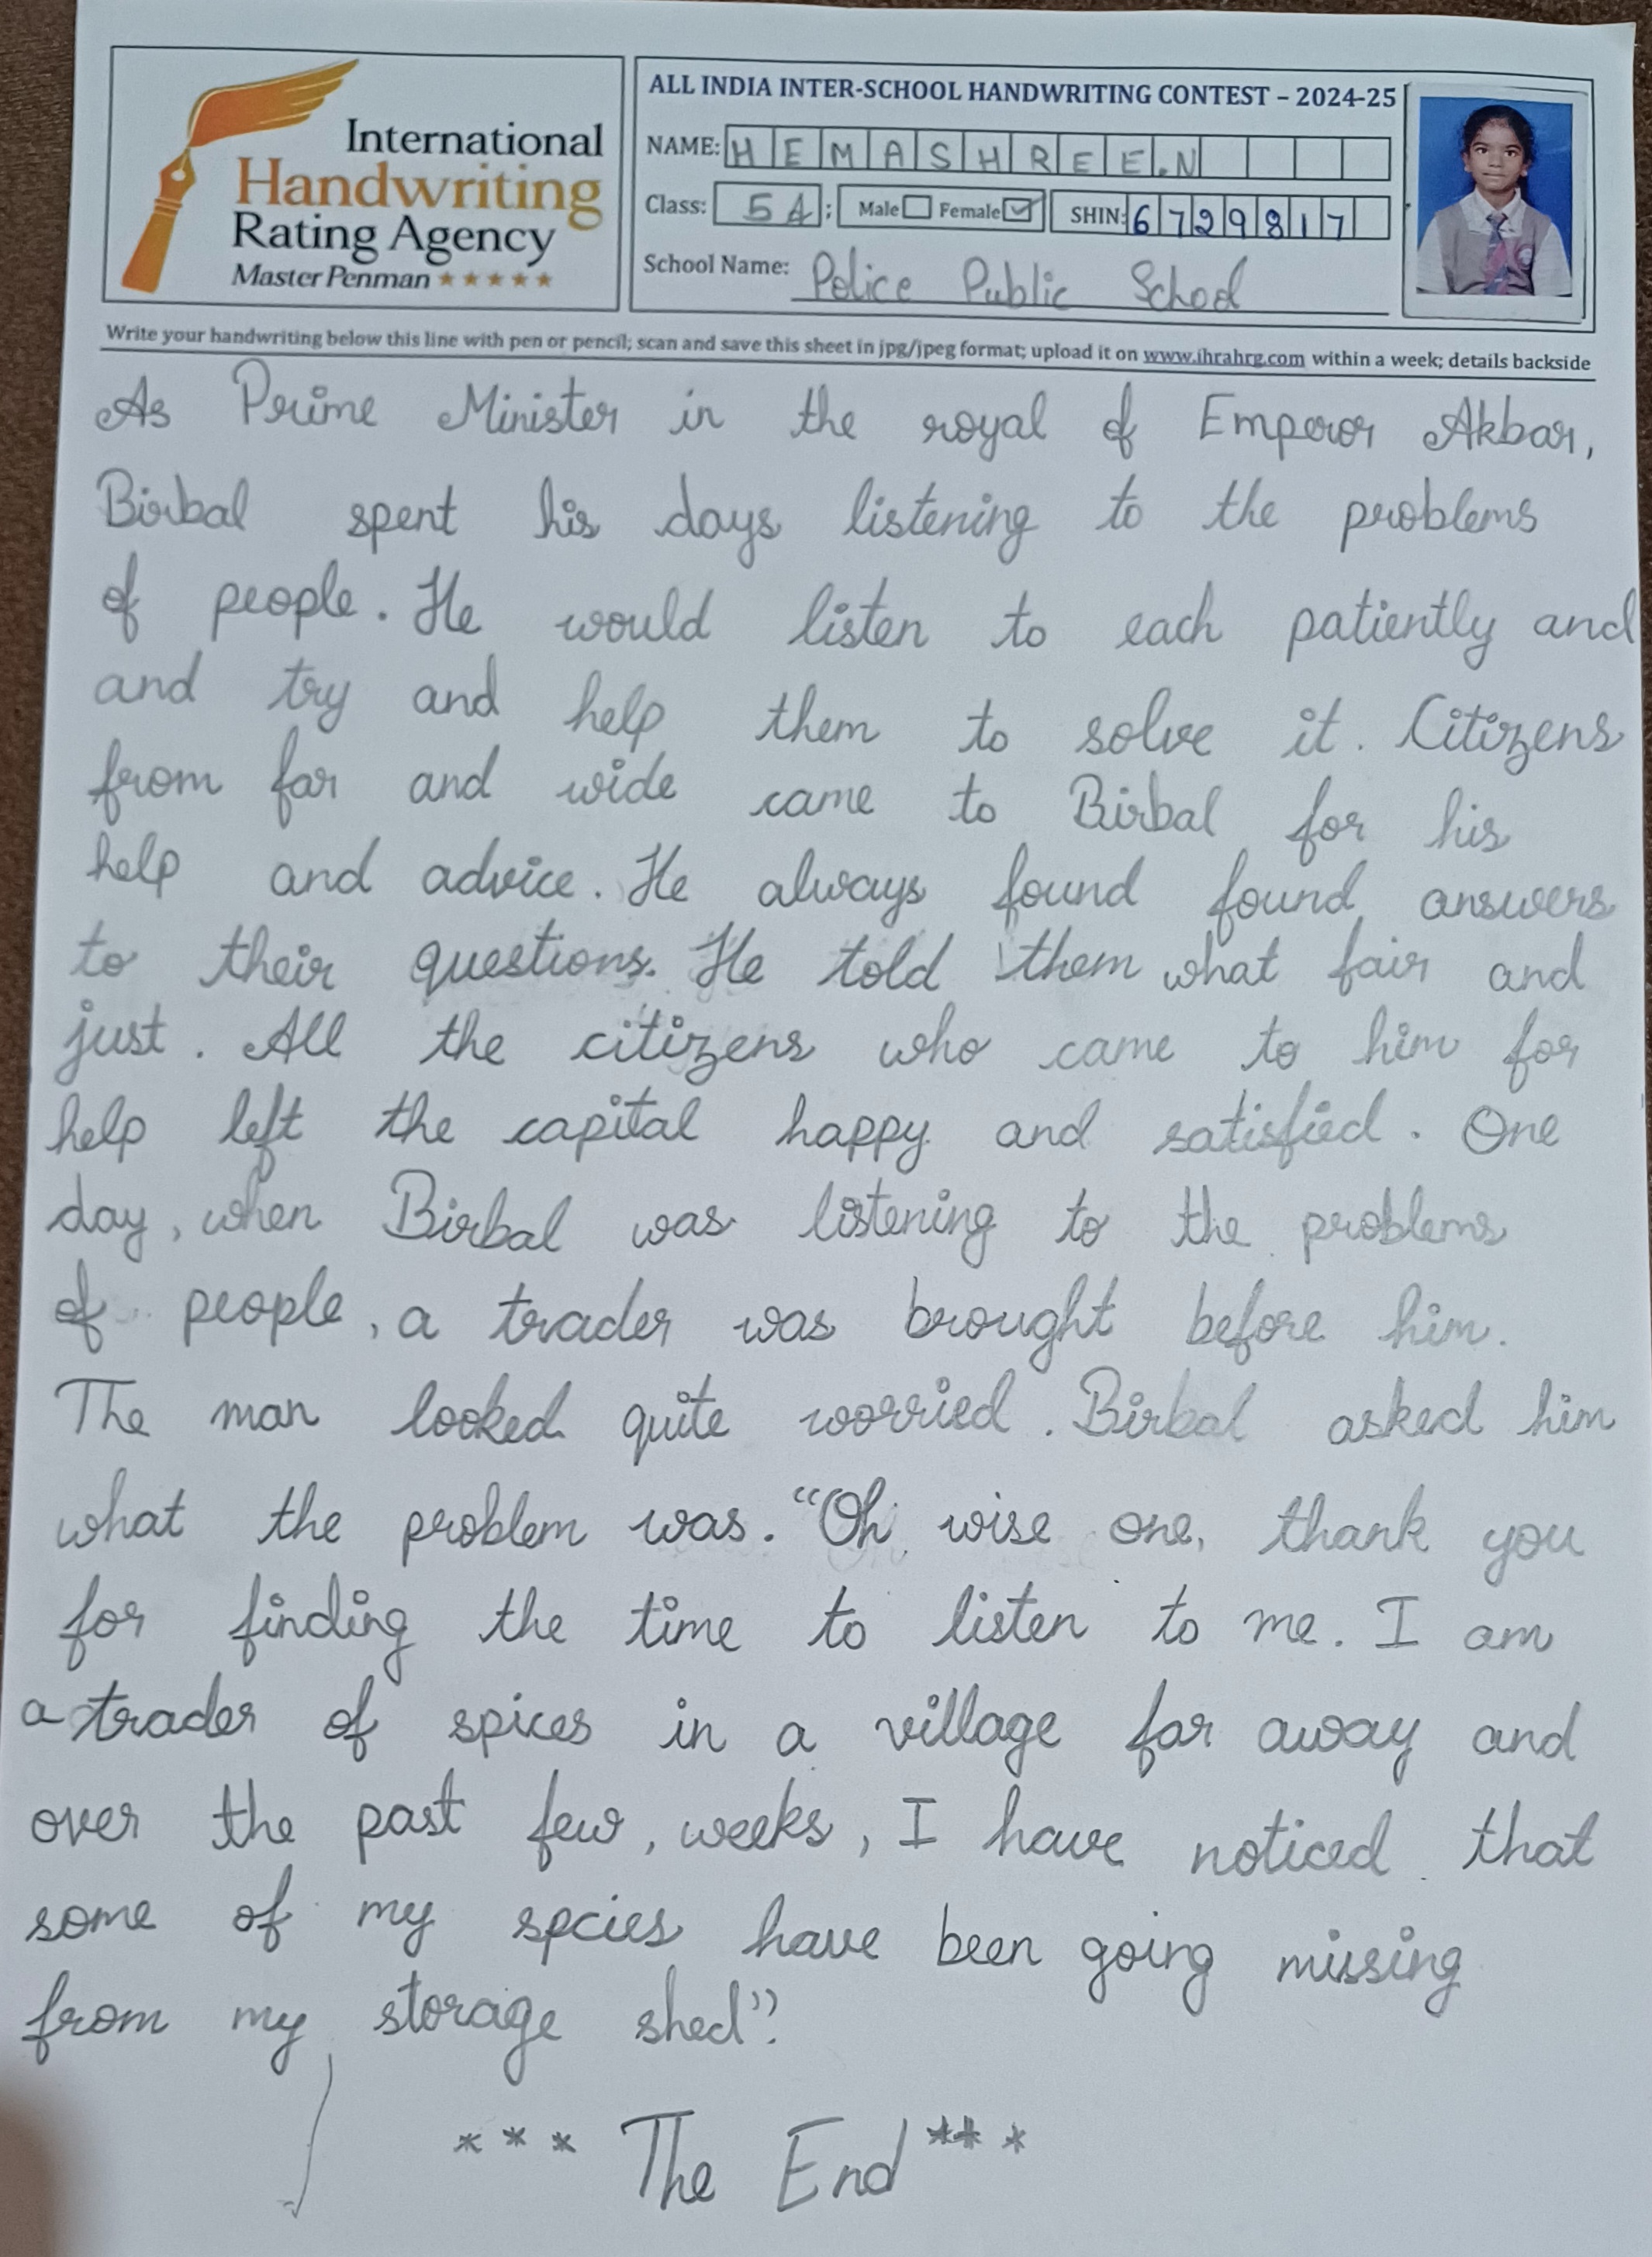 International
Handwriting
Rating Agency
Master Penman
ALL INDIA INTER-SCHOOL HANDWRITING CONTEST – 2024-25
NAME: HEMASHREE.N
Class: 5A; Male Female SHIN: 6729817
School Name: Police Public School
Write your handwriting below this line with pen or pencil; scan and save this sheet in jpg/jpeg format; upload it on www.ihrahrg.com within a week; details backside
As Prime Minister in the royal of Emperor Akbar,
Birbal spent his days listening to the problems
of people. He would listen to each patiently and
and try and help them to solve it. Citizens
from far and wide came to Birbal for his
help and advice. He always found found answers
to their questions. He told them what fair and
just. All the citizens who came to him for
help left the capital happy and satisfied. One
day, when Birbal was listening to the problems
of people, a trader was brought before him.
The man looked quite worried. Birbal asked him
what the problem was. "Oh wise one, thank you
for finding the time to listen to me. I am
a trader of spices in a village far away and
over the past few, weeks, I have noticed that
some of my spcies have been going missing
from my storage shed".
*** The End ***